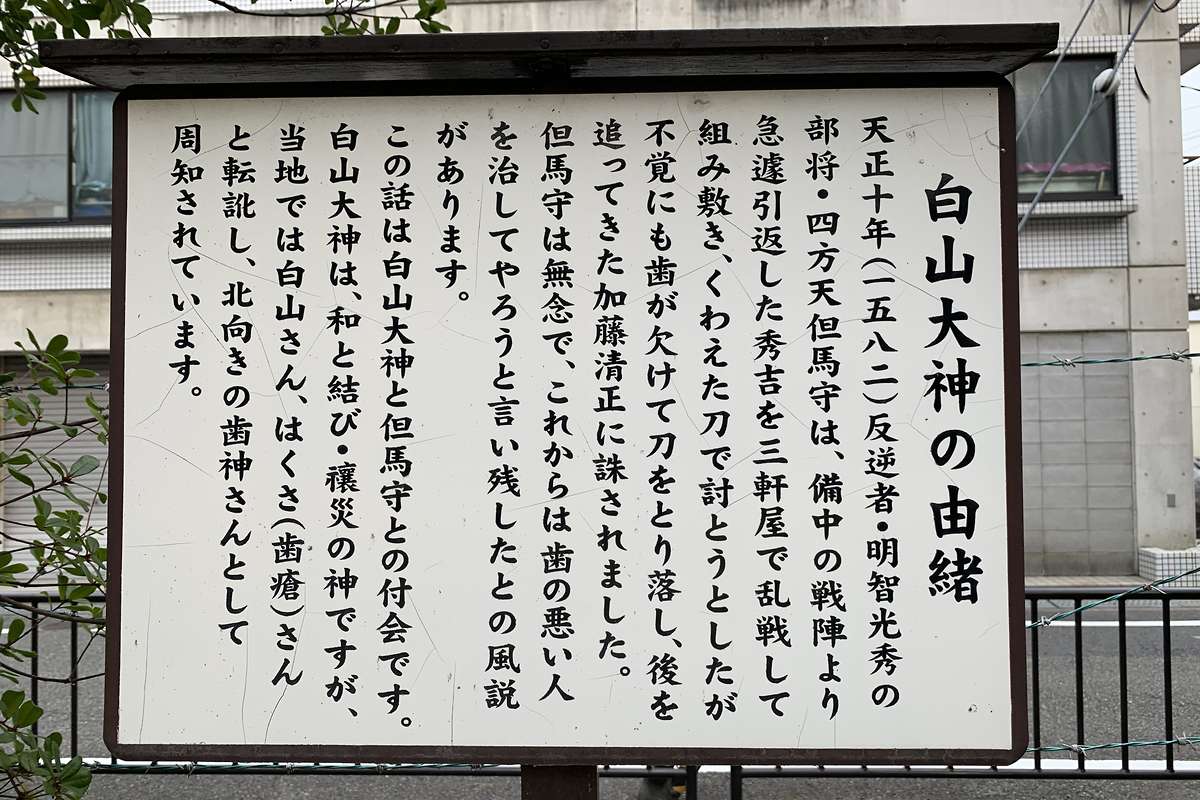 白山大神の由緒
天正十年(一五八二)反逆者・明智光秀の
部将・四方天但馬守は、備中の戦陣より
急遽引返した秀吉を三軒屋で乱戦して
組み敷き、くわえた刀で討とうとしたが
不覚にも歯が欠けて刀をとり落し、後を
追ってきた加藤清正に誅されました。
但馬守は無念で、これからは歯の悪い人
を治してやろうと言い残したとの風説
があります。
この話は白山大神と但馬守との付会です。
白山大神は、和と結び・禳災の神ですが、
当地では白山さん、はくさ(歯瘡)さん
と転訛し、北向きの歯神さんとして
周知されています。